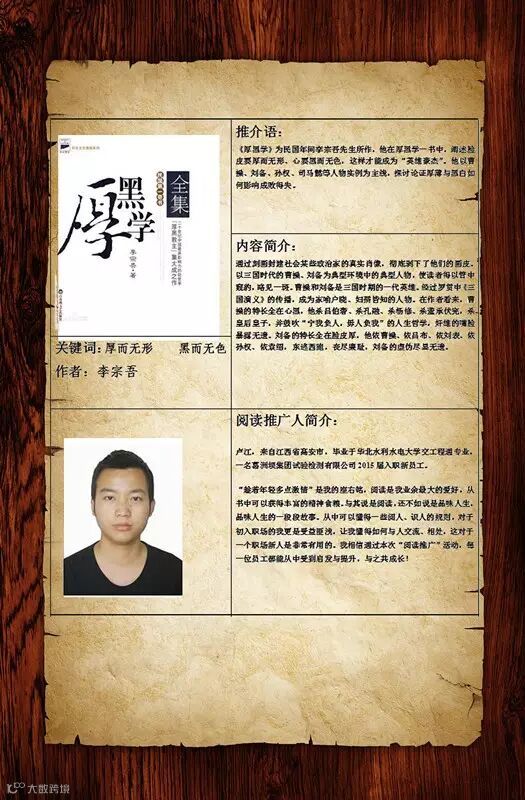 推介语:
《厚黑学》为民国年间李宗吾先生所作，他在厚黑学一书中，阐述脸
皮要厚而无形、心要黑而无色，这样才能成为“英雄豪杰”。他以曹
操、刘备、孙权、司马懿等人物实例为主线，探讨论证厚薄与黑白如
何影响成败得失。
全集
民国第一奇书
厚黑学
“厚黑教主”集大成之作
李宗吾·著
关键词:厚而无形 黑而无色
作者：李宗吾
内容简介:
通过刻画封建社会某些政治家的真实肖像，彻底剥下了他们的画皮。
以三国时代的曹操、刘备为典型环境中的典型人物，使读者得以管中
窥豹，略见一斑。曹操和刘备是三国时期的一代英雄。经过罗贯中《三
国演义》的传播，成为家喻户晓、妇孺皆知的人物。在作者看来，曹
操的特长全在心黑，他杀吕伯奢、杀孔融、杀杨修、杀董承伏完，杀
皇后皇子，并鼓吹“宁我负人，毋人负我”的人生哲学，奸雄的嘴脸
暴露无遗。刘备的特长全在脸皮厚，他依曹操、依吕布、依刘表、依
孙权、依袁绍，东逃西跑，丧尽廉耻，刘备的虚伪尽显无遗。
阅读推广人简介:
卢江，来自江西省高安市，毕业于华北水利水电大学交工程通专业，
一名葛洲坝集团试验检测有限公司2015届入职新员工。
“趁着年轻多点激情”是我的座右铭，阅读是我业余最大的爱好，从
书中可以获得丰富的精神食粮。与其说是阅读，还不如说是品味人生，
品味人生的一段段故事。从中可以懂得一些阅人、识人的规则，对于
初入职场的我更是受益匪浅，让我懂得如何与人交流、相处，这对于
一个职场新人是非常有用的。我相信通过本次“阅读推广”活动，每
一位员工都能从中受到启发与提升，与之共成长!
大数跨境